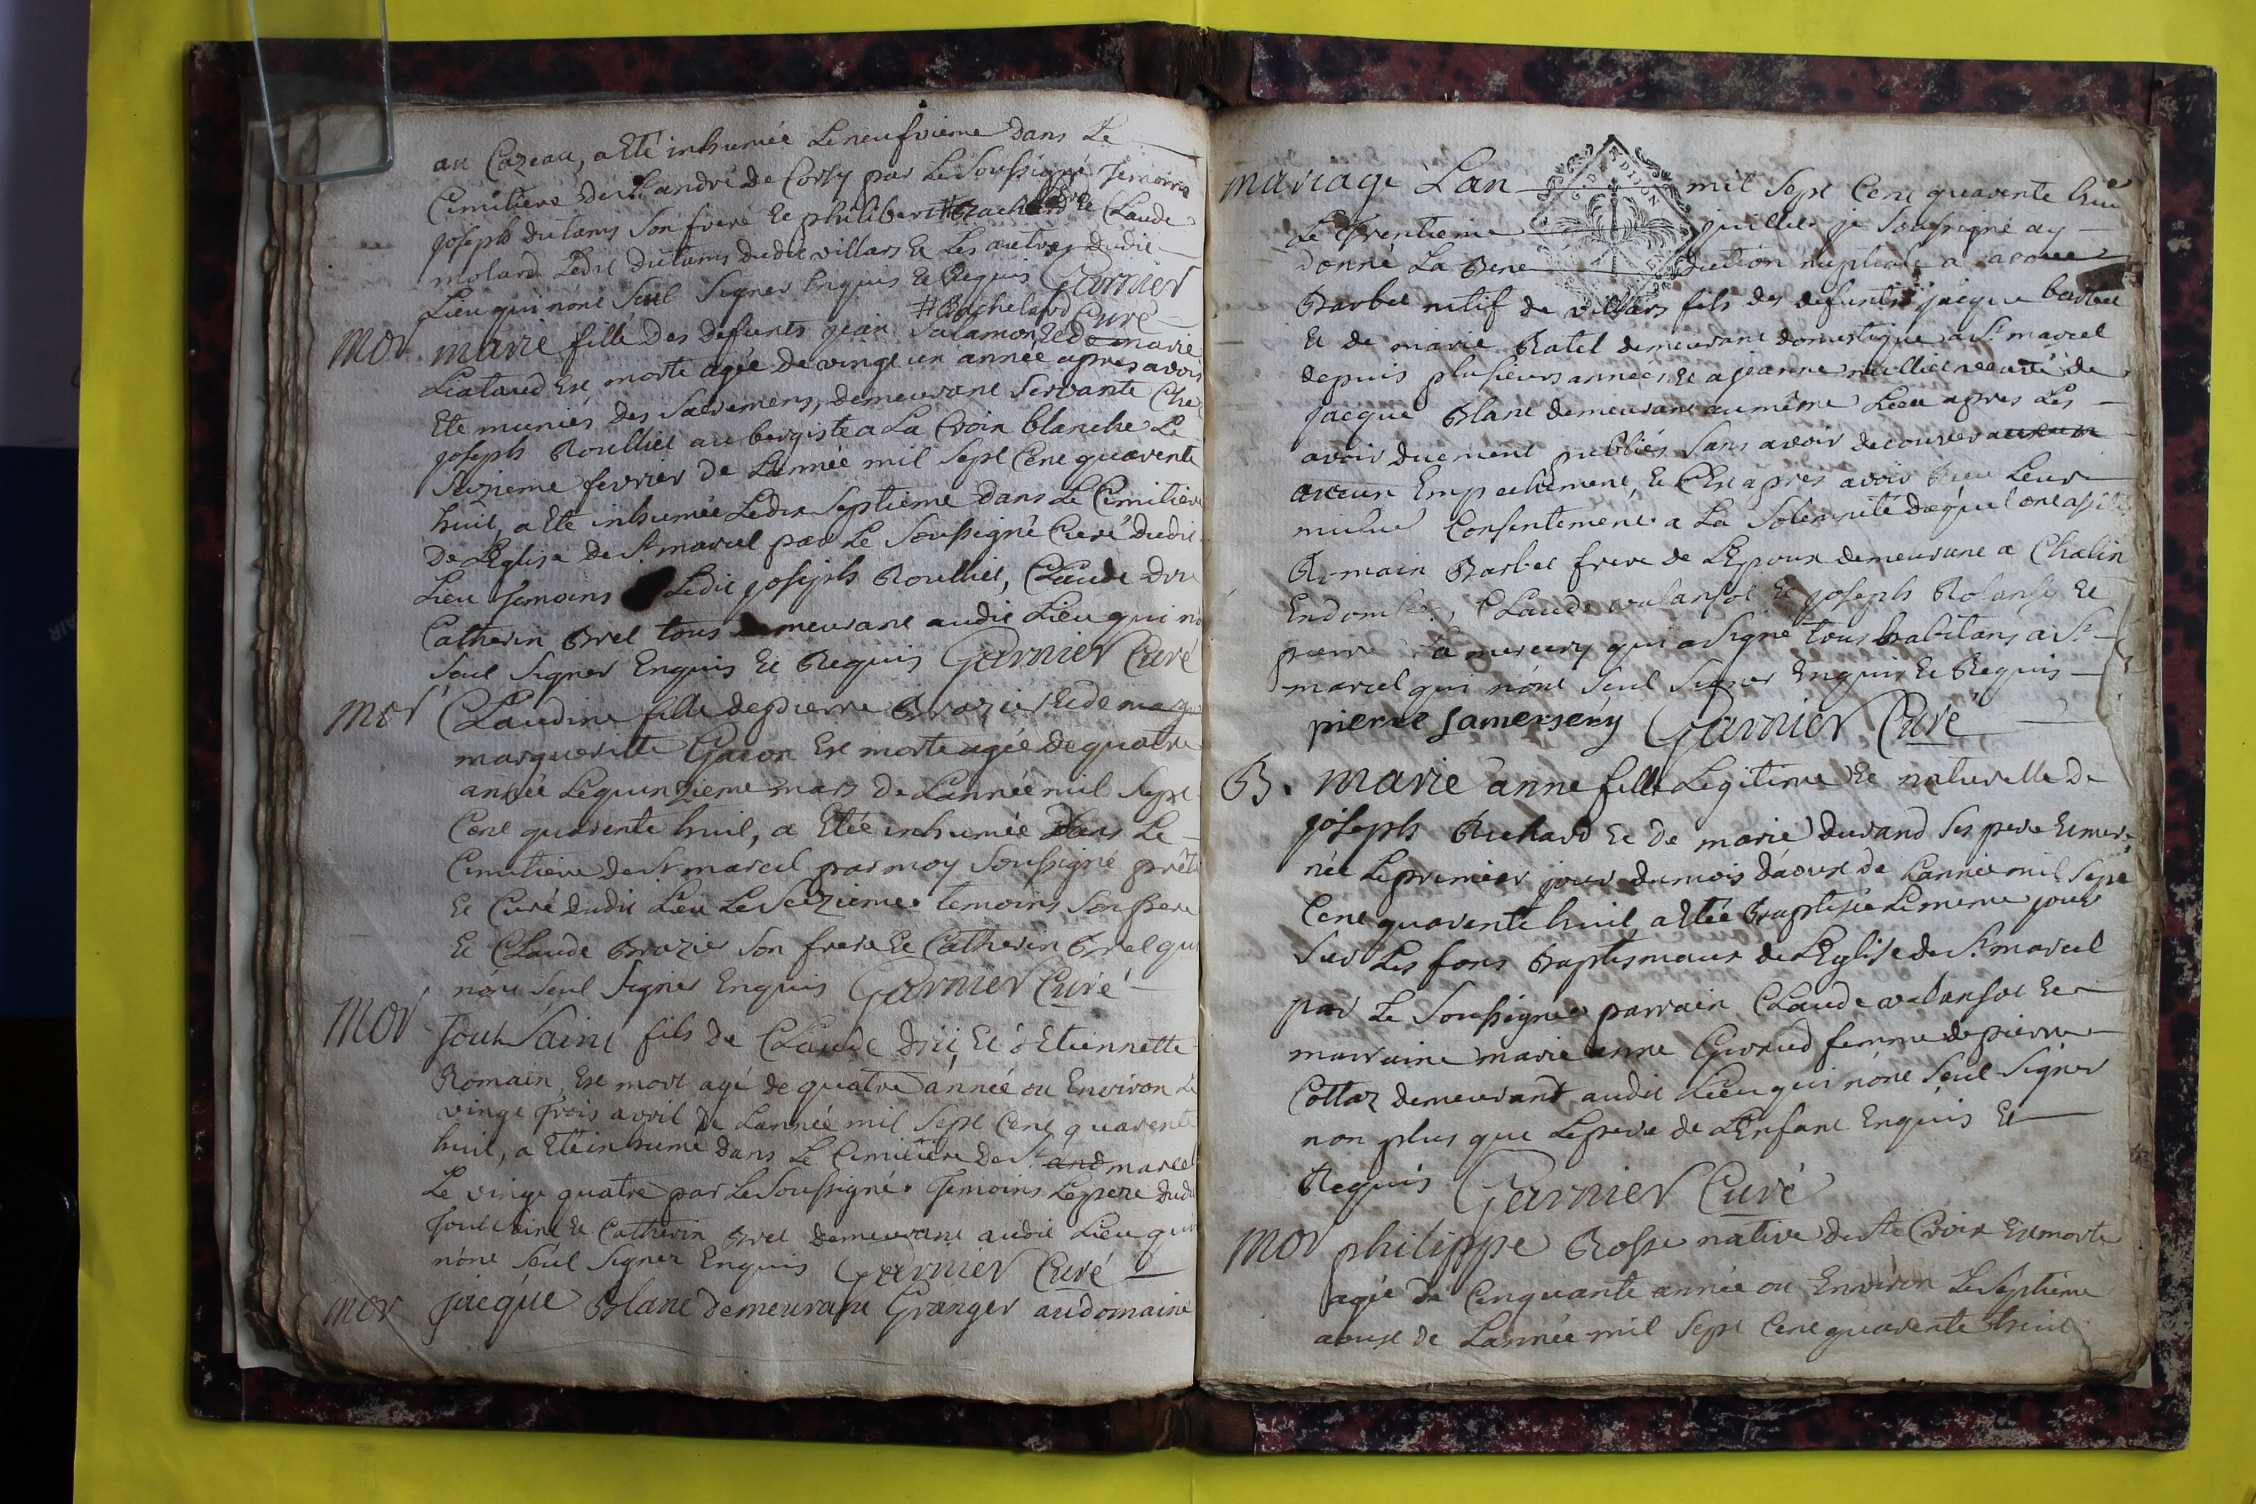 au Cazeau, a Eté inhumée Le neufvieme dans Le
Cimitiere de St andré de Corsy par Le Soussigné Temoins
joseph dutams Son frere Ee philibert # Bachelard Ee Claude
molard Ledit dutams dudit villars Ee Les autres dudit
Lieu qui nónt Seul Signer Enquis Ee Requis Garnier
# Bachelard Curé
mor marie fille des defunts jean Salamon Ee de marie
Liataud Est morte agée de vingt un année apres avoir
Ete munies des Sacremens, demeurant Servante Che
joseph Roulliet aubergiste a La Croix blanche Le
Seizieme fevrier de L'année mil Sept Cent quarente
huit, a Eté inhumée Ledix Septieme dans Le Cimitiere
De LEglise de St marcel par Le Soussigné Curé dudit
Lieu Temoins Ledit joseph Roulliet, Claude Drii
Catherin Brel tous demeurant audit Lieu qui nó
Seul Signer Enquis Ee Requis Garnier Curé
mor Claudine fille de pierre Brazier Ee de
marguerite Gacon Est morte agée de quatre
année Le quinzieme mars de L'année mil Sept
Cent quarente huit, a Etée inhumée dans Le
Cimitiere de St marcel par moy Soussigné prêtre
Ee Curé dudit Lieu Le Seizieme. temoins Son pere
Ee Claude Brazier Son frere Ee Catherin Brel qui
nónt Seul Signer Enquis Garnier Curé
Mor Tout Saint fils de Claude Drii, Ee d Etiennette
Romain, Est mort agé de quatre année ou Environ Le
vingt trois avril de L'année mil Sept Cent quarente
huit, a Eté inhumé dans Le Cimitiere de St and marcel
Le vingt quatre par Le Soussigné. Temoins Le pere dudit
Tout Saint Ee Catherin Brel demeurant audit Lieu qui
nónt Seul Signer Enquis Garnier Curé
mor jacque Blanc demeurant Granger au domaine
mariage Lan mil Sept Cent quarente huit
Le Trentieme juillet je Soussigné ay
donné La Bene diction nuptiale a
Barbet nitif de villars fils des defunts jacque barbet
Ee de marie Ratel demeurant domestique a St marcel
depuis plusieurs années Ee a jeanne veuve de
jacque Blanc demeurant au même Lieu apres Les
avoir duement publiés Sans avoir decouver aucun
aucun Empechement, Ee Cest apres avoir Reçu Leur
mutuel Consentement a La Solemnité duquel ont assiste
Romain Barbet frere de LEpoux demeurant a Chalin
Endombes, Claude valansot Ee joseph Rolansy Ee
pierre a mercery qui a Signé tous habitans a St
marcel qui nónt Seul Signer Enquis Ee Requis
pierre Samersery Garnier Curé
B. marie anne fille Legitime Ee naturelle de
joseph Richard Ee de marie durand Ses pere Ee mere
née Le premier jour du mois d'aoust de L'année mil Sept
Cent quarente huit, a Etée Baptisée Le meme jour
Sur Les fons Baptismaux de LEglise de St marcel
par Le Soussigné parrain Claude valansot Ee
marraine marie anne Giraud femme de pierre
Cottaz demeurant audit Lieu qui nónt Seul Signer
non plus que Le pere de LEnfant Enquis Ee
Requis Garnier Curé
Mor philippe Rosse native de Ste Croix Est morte
agée de Cinquante année ou Environ Le Septieme
aoust de L'année mil Sept Cent quarente huit